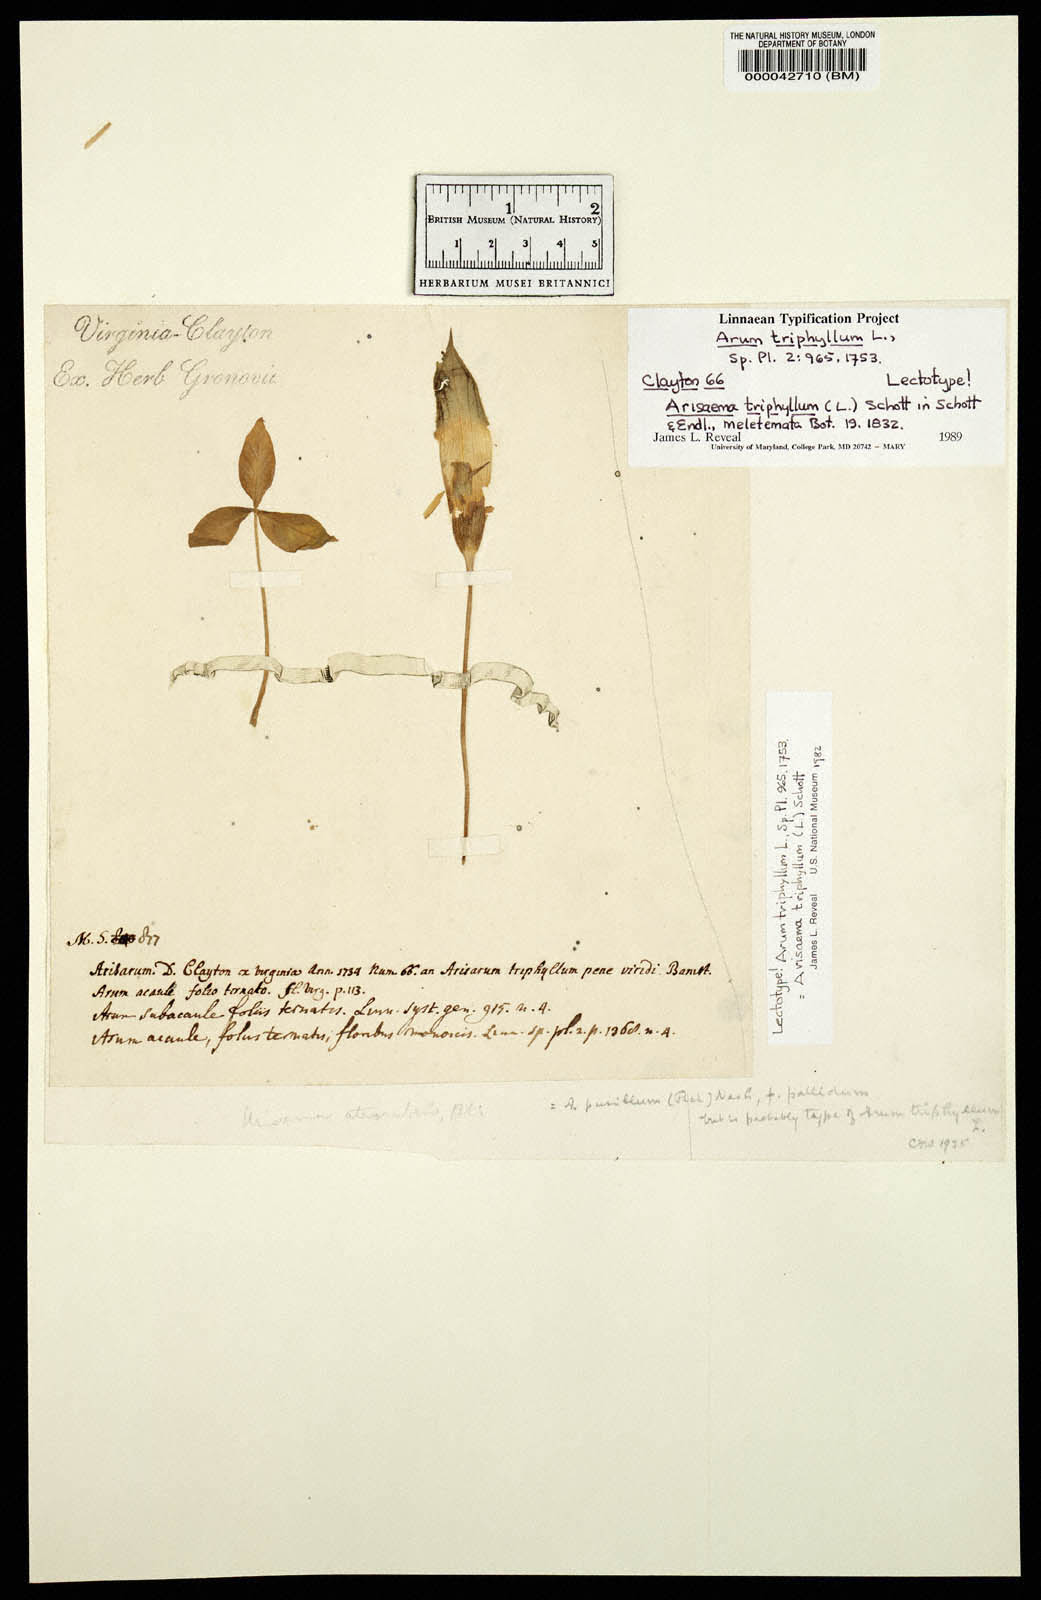 THE NATURAL HISTORY MUSEUM, LONDON
DEPARTMENT OF BOTANY
000042710 (BM)
1 2
BRITISH MUSEUM (NATURAL HISTORY)
1 2 3 4 5
HERBARIUM MUSEI BRITANNICI
Virginia-Clayton
Ex. Herb Gronovii
Linnaean Typification Project
Arum triphyllum L.,
Sp. Pl. 2: 965. 1753.
Clayton 66 Lectotype!
Arisaema triphyllum (L.) Schott in Schott
& Endl., Meletemata Bot. 19. 1832.
James L. Reveal 1989
University of Maryland, College Park, MD 20742 – MARY
Lectotype! Arum triphyllum L., Sp. Pl. 965. 1753.
= Arisaema triphyllum (L.) Schott
James L. Reveal U.S. National Museum 1982
M. S. 877
Arisarum. D. Clayton ex Virginia Ann. 1734 Num. 66. an Arisarum triphyllum pene viridi Banist.
Arum acaule folio ternato. fl. Virg. p. 113.
Arum subacaule foliis ternatis. Linn. Syst. gen. 915. n. 4.
Arum acaule, foliis ternatis, floribus monoicis. Linn. sp. pl. 2. p. 1368. n. 4.
Arisaema atrorubens, Bl:
= A. pusillum (Peck) Nash, f. pallidum
but is probably type of Arum triphyllum
L.
1935